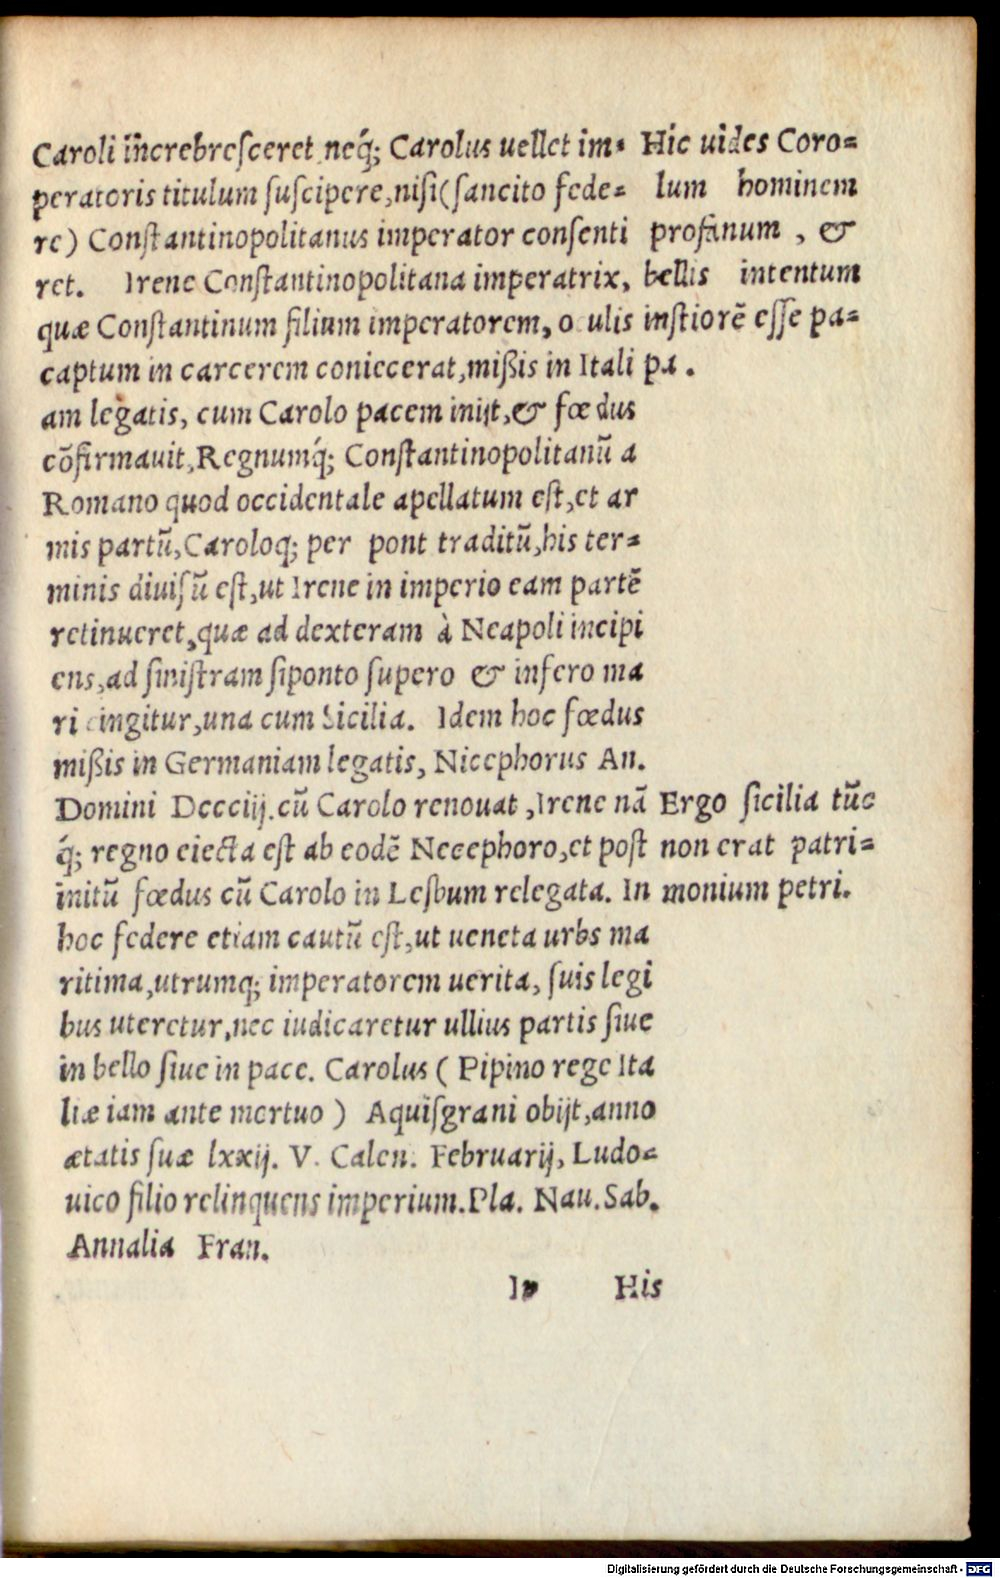 Caroli increbresceret neq́; Carolus uellet im-
peratoris titulum suscipere, nisi (sancito fede=
re) Constantinopolitanus imperator consenti
ret. Irene Constantinopolitana imperatrix,
quæ Constantinum filium imperatorem, oculis
captum in carcerem coniecerat, mißis in Itali
am legatis, cum Carolo pacem inijt, & fœdus
cōfirmauit, Regnumq́; Constantinopolitanū a
Romano quod occidentale apellatum est, et ar
mis partū, Caroloq; per pont traditū, his ter=
minis diuisū est, ut Irene in imperio eam partē
retinueret, quæ ad dexteram à Neapoli incipi
ens, ad sinistram siponto supero & infero ma
ri cingitur, una cum Sicilia. Idem hoc fœdus
mißis in Germaniam legatis, Nicephorus An.
Domini Dccciij. cū Carolo renouat, Irene nā
q́; regno eiecta est ab eodē Neeephoro, et post
initū fœdus cū Carolo in Lesbum relegata. In
hoc federe etiam cautū est, ut ueneta urbs ma
ritima, utrumq; imperatorem uerita, suis legi
bus uteretur, nec iudicaretur ullius partis siue
in bello siue in pace. Carolus ( Pipino rege Ita
liæ iam ante mortuo ) Aquisgrani obijt, anno
ætatis suæ lxxij. V. Calen. Februarij, Ludo=
uico filio relinquens imperium. Pla. Nau. Sab.
Annalia Fran.
Hic uides Coro=
lum hominem
profanum , &
bellis intentum
instiorē esse pa=
pa.
Ergo sicilia tūc
non erat patri=
monium petri.
His
Digitalisierung gefördert durch die Deutsche Forschungsgemeinschaft - DFG